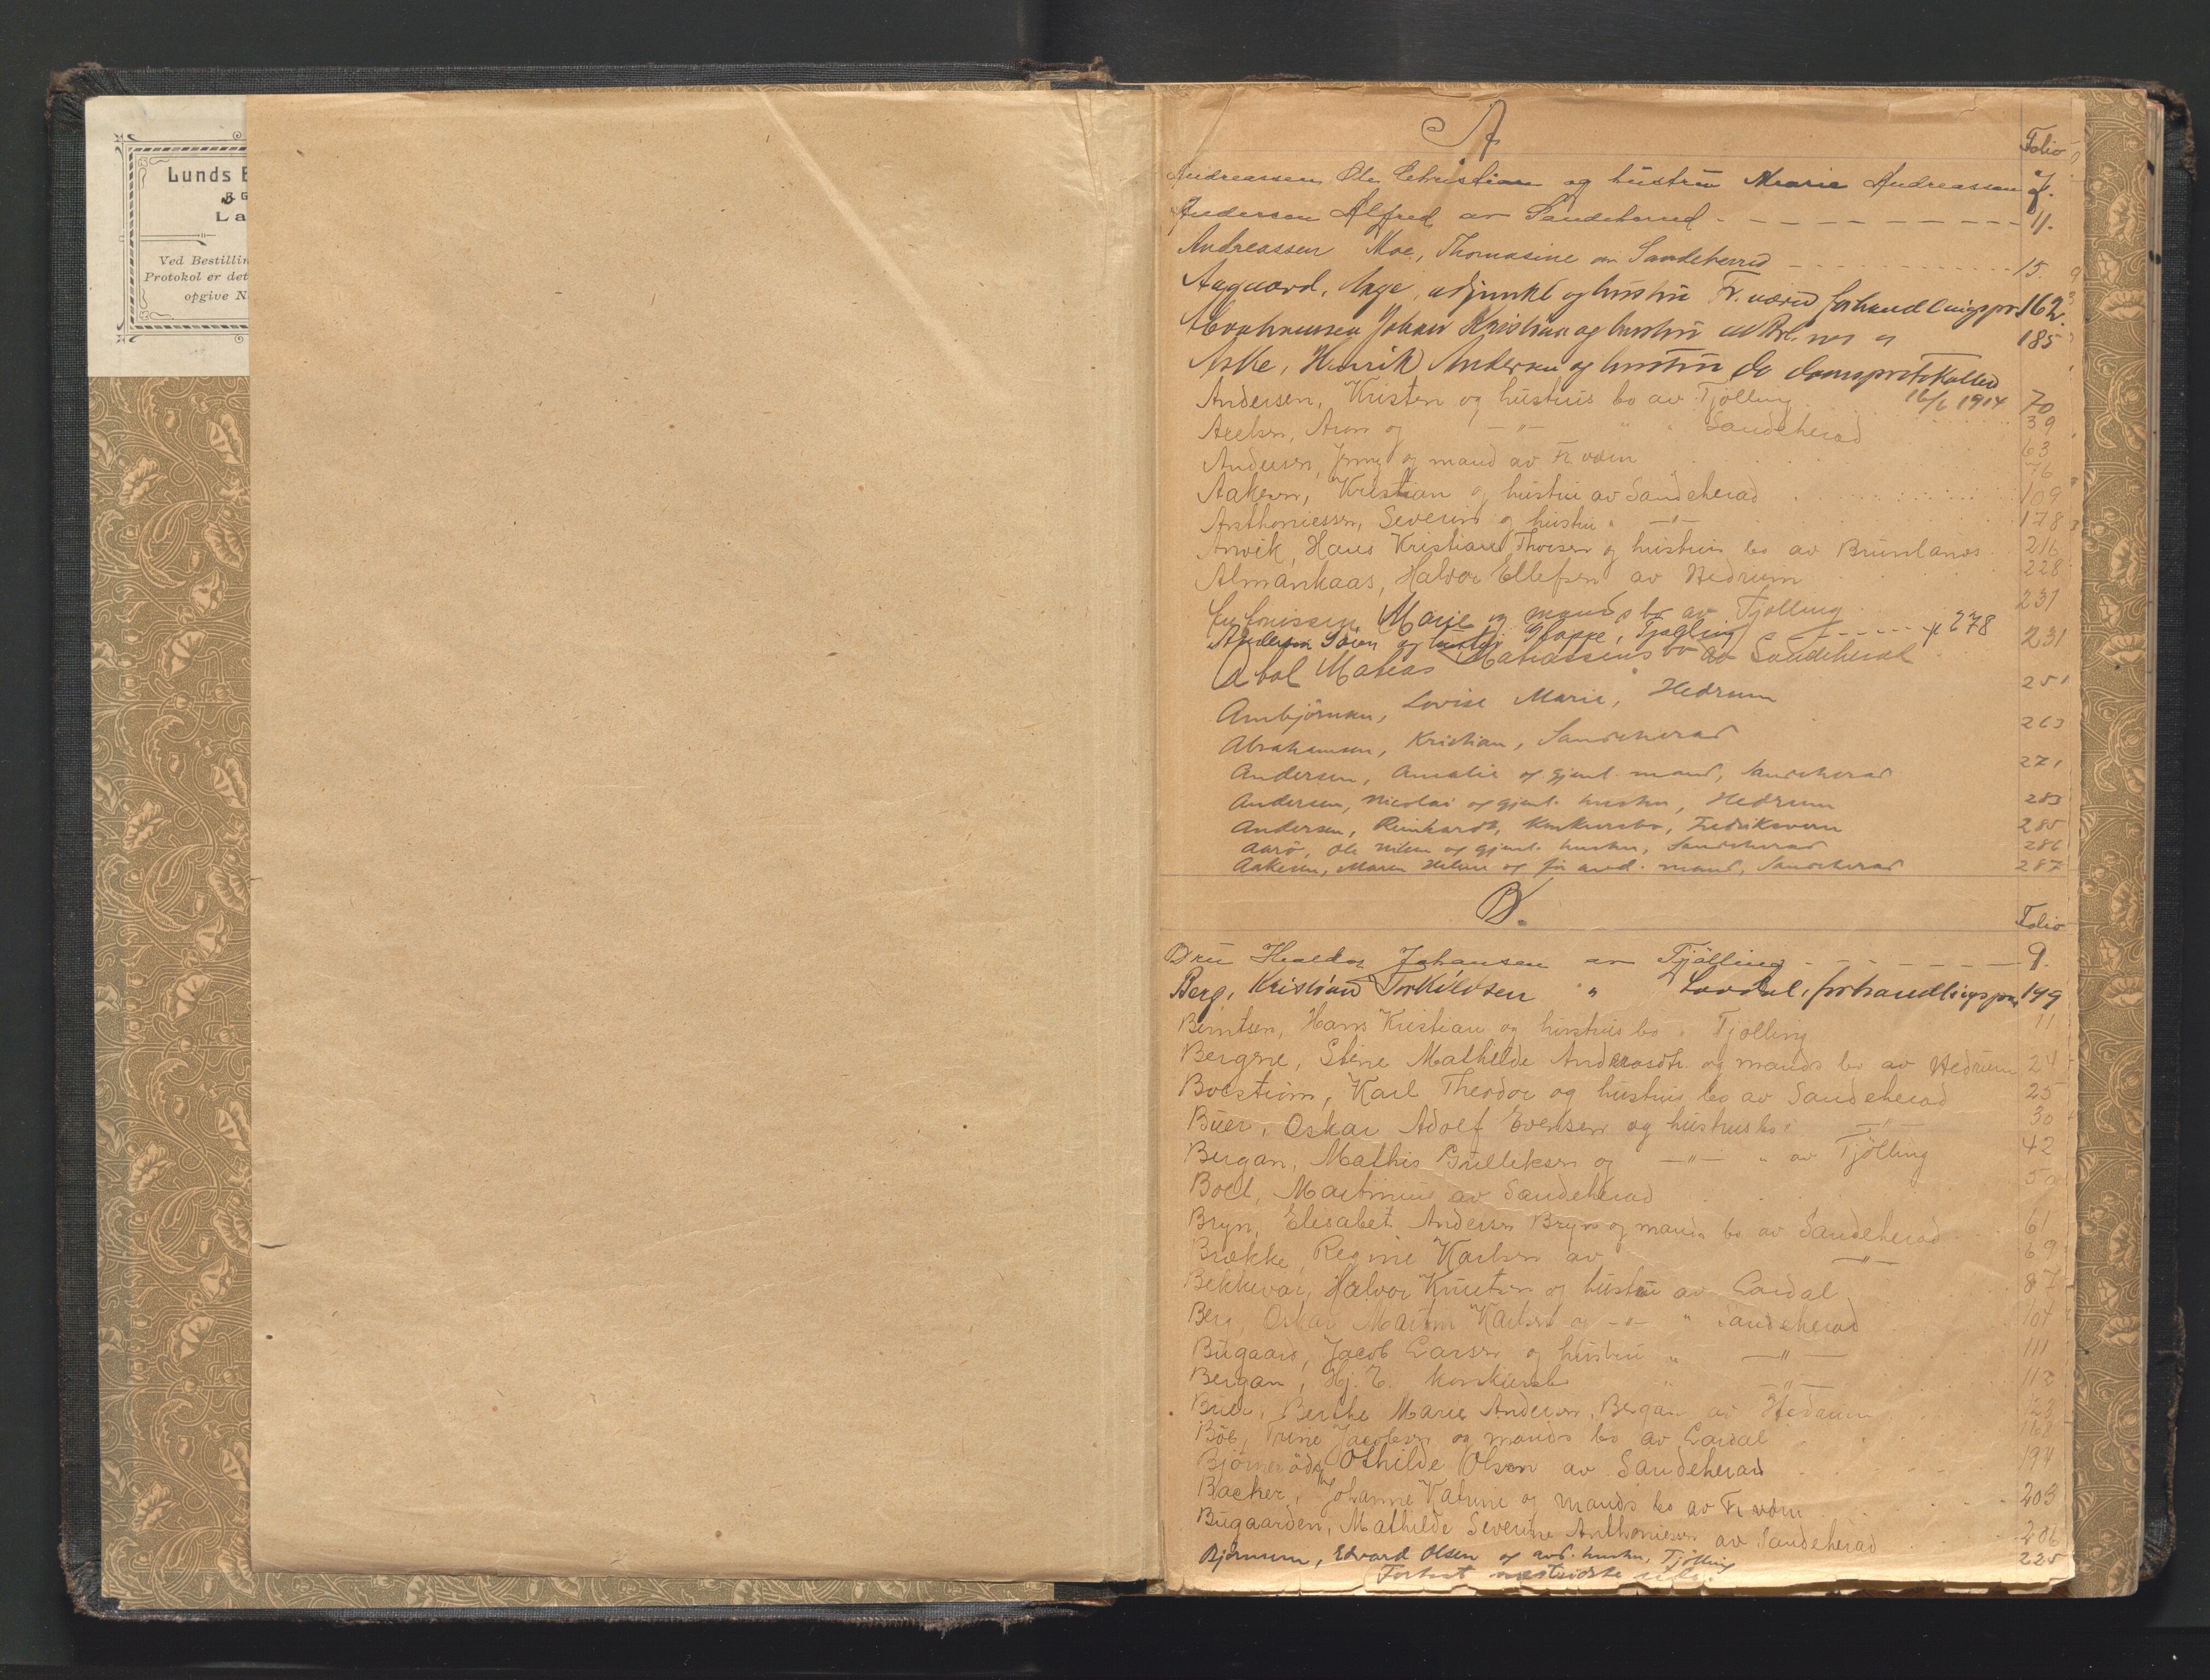 Lunds
La
Ved Bestillin
Protokol er det
opgive N
A
Folio
Andreassen Ole Christian og hustru Marie Andreassen 7.
Andersen Alfred av Sandeherred 11.
Andreassen Moe, Thomasine av Sandeherred 15.
Aagaard, Aage, adjunkt og hustru Fr.værn forhandlingspr. 162.
Abrahamsen Johan Kristian og hustru 185
Aske, Henrik Andersen og hustru do domsprotokollen
16/6 1914
Andersen, Kristen og hustrus bo av Tjølling 70
Axelsen, Aron og —"— " " Sandeherad 39
Andersen, Jenny og mand av Fr.værn 63
76
Aakesen, Kristian og hustru av Sandeherad 109
Anthoniessen, Severin og hustru " —"— 178
Arvik, Hans Kristian Thorsen og hustrus bo av Brunlanes 216
Almankaas, Halvor Ellefsen av Hedrum 228
Marie og mands bo av Tjølling 231
Andersen Sören og hustru Gloppe, Tjølling 278
Abol Matias Matiassens bo av Sandeherad 231
Ambjörnsen, Lovise Marie, Hedrum 251
Abrahamsen, Kristian, Sandeherad 263
Andersen, Amalie og gjenl. mand, Sandeherad 271
Andersen, Nicolai og gjenl. hustru, Hedrum 283
Andersen, Reinhardt, konkursbo, Fredriksvern 285
Aarö, Ole Nilsen og gjenl. hustru, Sandeherad 286
Aakesen, Maren Heline og før avd. mand, Sandeherad 287
B.
Folio
Bru Haldor Johansen av Tjölling 9.
Berg, Kristian Torkildsen " Lardal, forhandlingspr. 149
Berntsen, Hans Kristian og hustrus bo " Tjølling 11
Bergene, Stine Mathilde Andreasdtr. og mands bo av Hedrum 24
Boestrøm, Karl Theodor og hustrus bo av Sandeherad 25
Buer, Oskar Adolf Evensen og hustrus bo " —"— 30
Bergan, Mathis Gulliksen og —"— " av Tjölling 42
Boel, Martinius av Sandeherad 50
Bryn, Elisabet Andersen Bryn og mands bo av Sandeherad 61
Brække, Regine Karlsen av —"— 69
Bekkevar, Halvor Knutsen og hustru av Lardal 87
Berg, Oskar Martin Karlsen og —"— " Sandeherad 104
Bugaard, Jacob Larsen og hustru " —"— 111
Bergan, Hj. E. konkursbo " —"— 112
Buer, Berthe Marie Andersen Bergan av Hedrum 123
Böe, Trine Jacobsen og mands bo av Lardal 168
Bjørnerød, Othilde Olsen av Sandeherad 194
Backer, Johanne Katrine og mands bo av Fr.værn 203
Bugaarden, Mathilde Severine Anthoniesen av Sandeherad 206
Bjørnum, Edvard Olsen og avd. hustru, Tjölling 225
Fortsat næstsidste side.